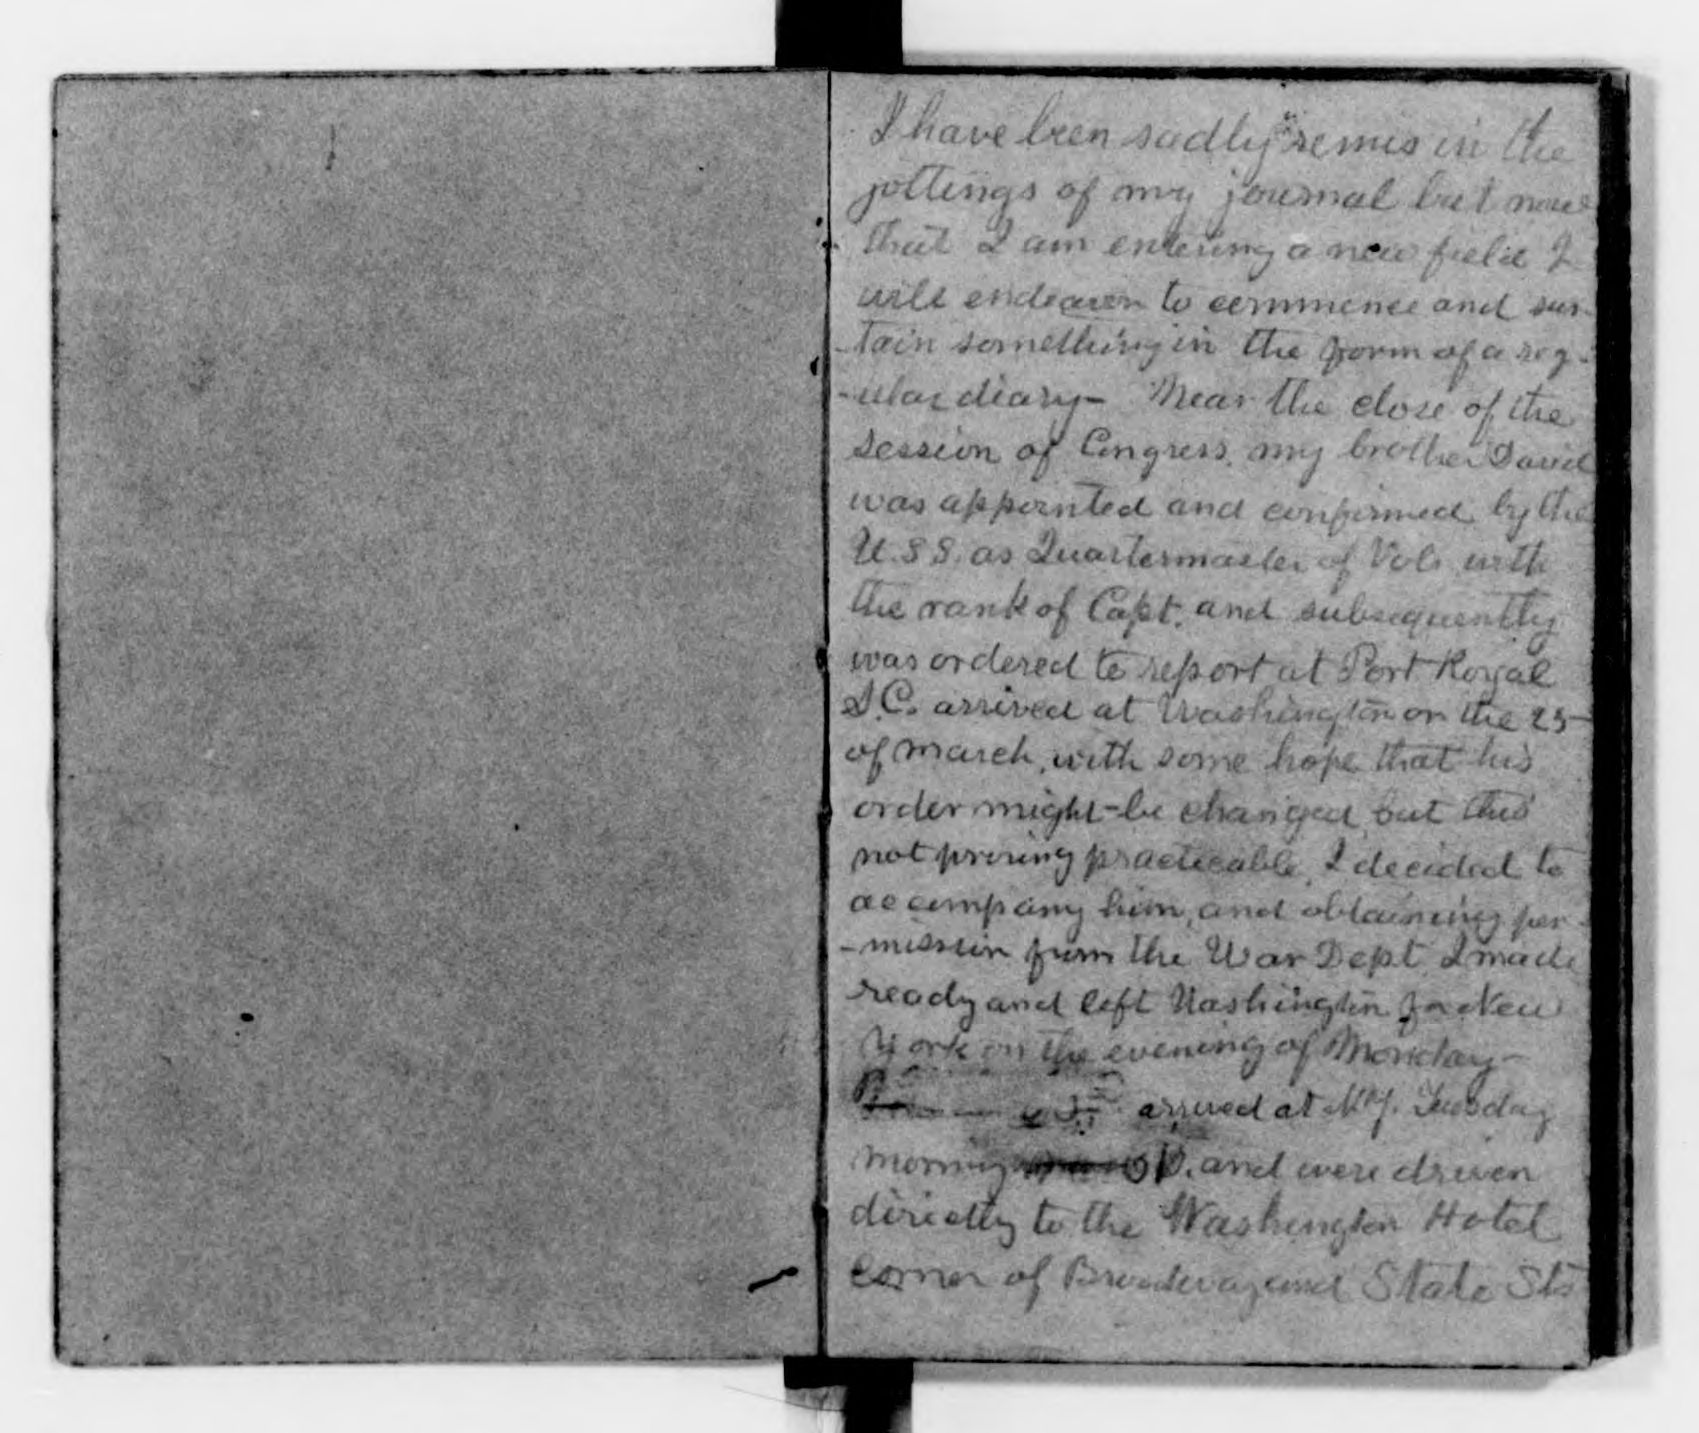 I have been sadly remis in the
jottings of my journal but now
that I am entering a new field I
will endeavor to commence and sus-
-tain something in the form of a reg-
-ular diary - Near the close of the
session of Congress. my brother David
was appointed and confirmed by the
U.S.S. as Quartermaster of Vols with
the rank of Capt. and subsequently
was ordered to report at Port Royal
S.C. arrived at Washington on the 25
of march, with some hope that his
order might be changed, but this
not proving practicable, I decided to
accompany him, and obtaining per-
-mission from the War Dept. I made
ready and left Washington for New
York on the evening of Monday -
arrived at N.Y. Tuesday
morning and were driven
directly to the Washington Hotel
Corner of Broadway and State Sts